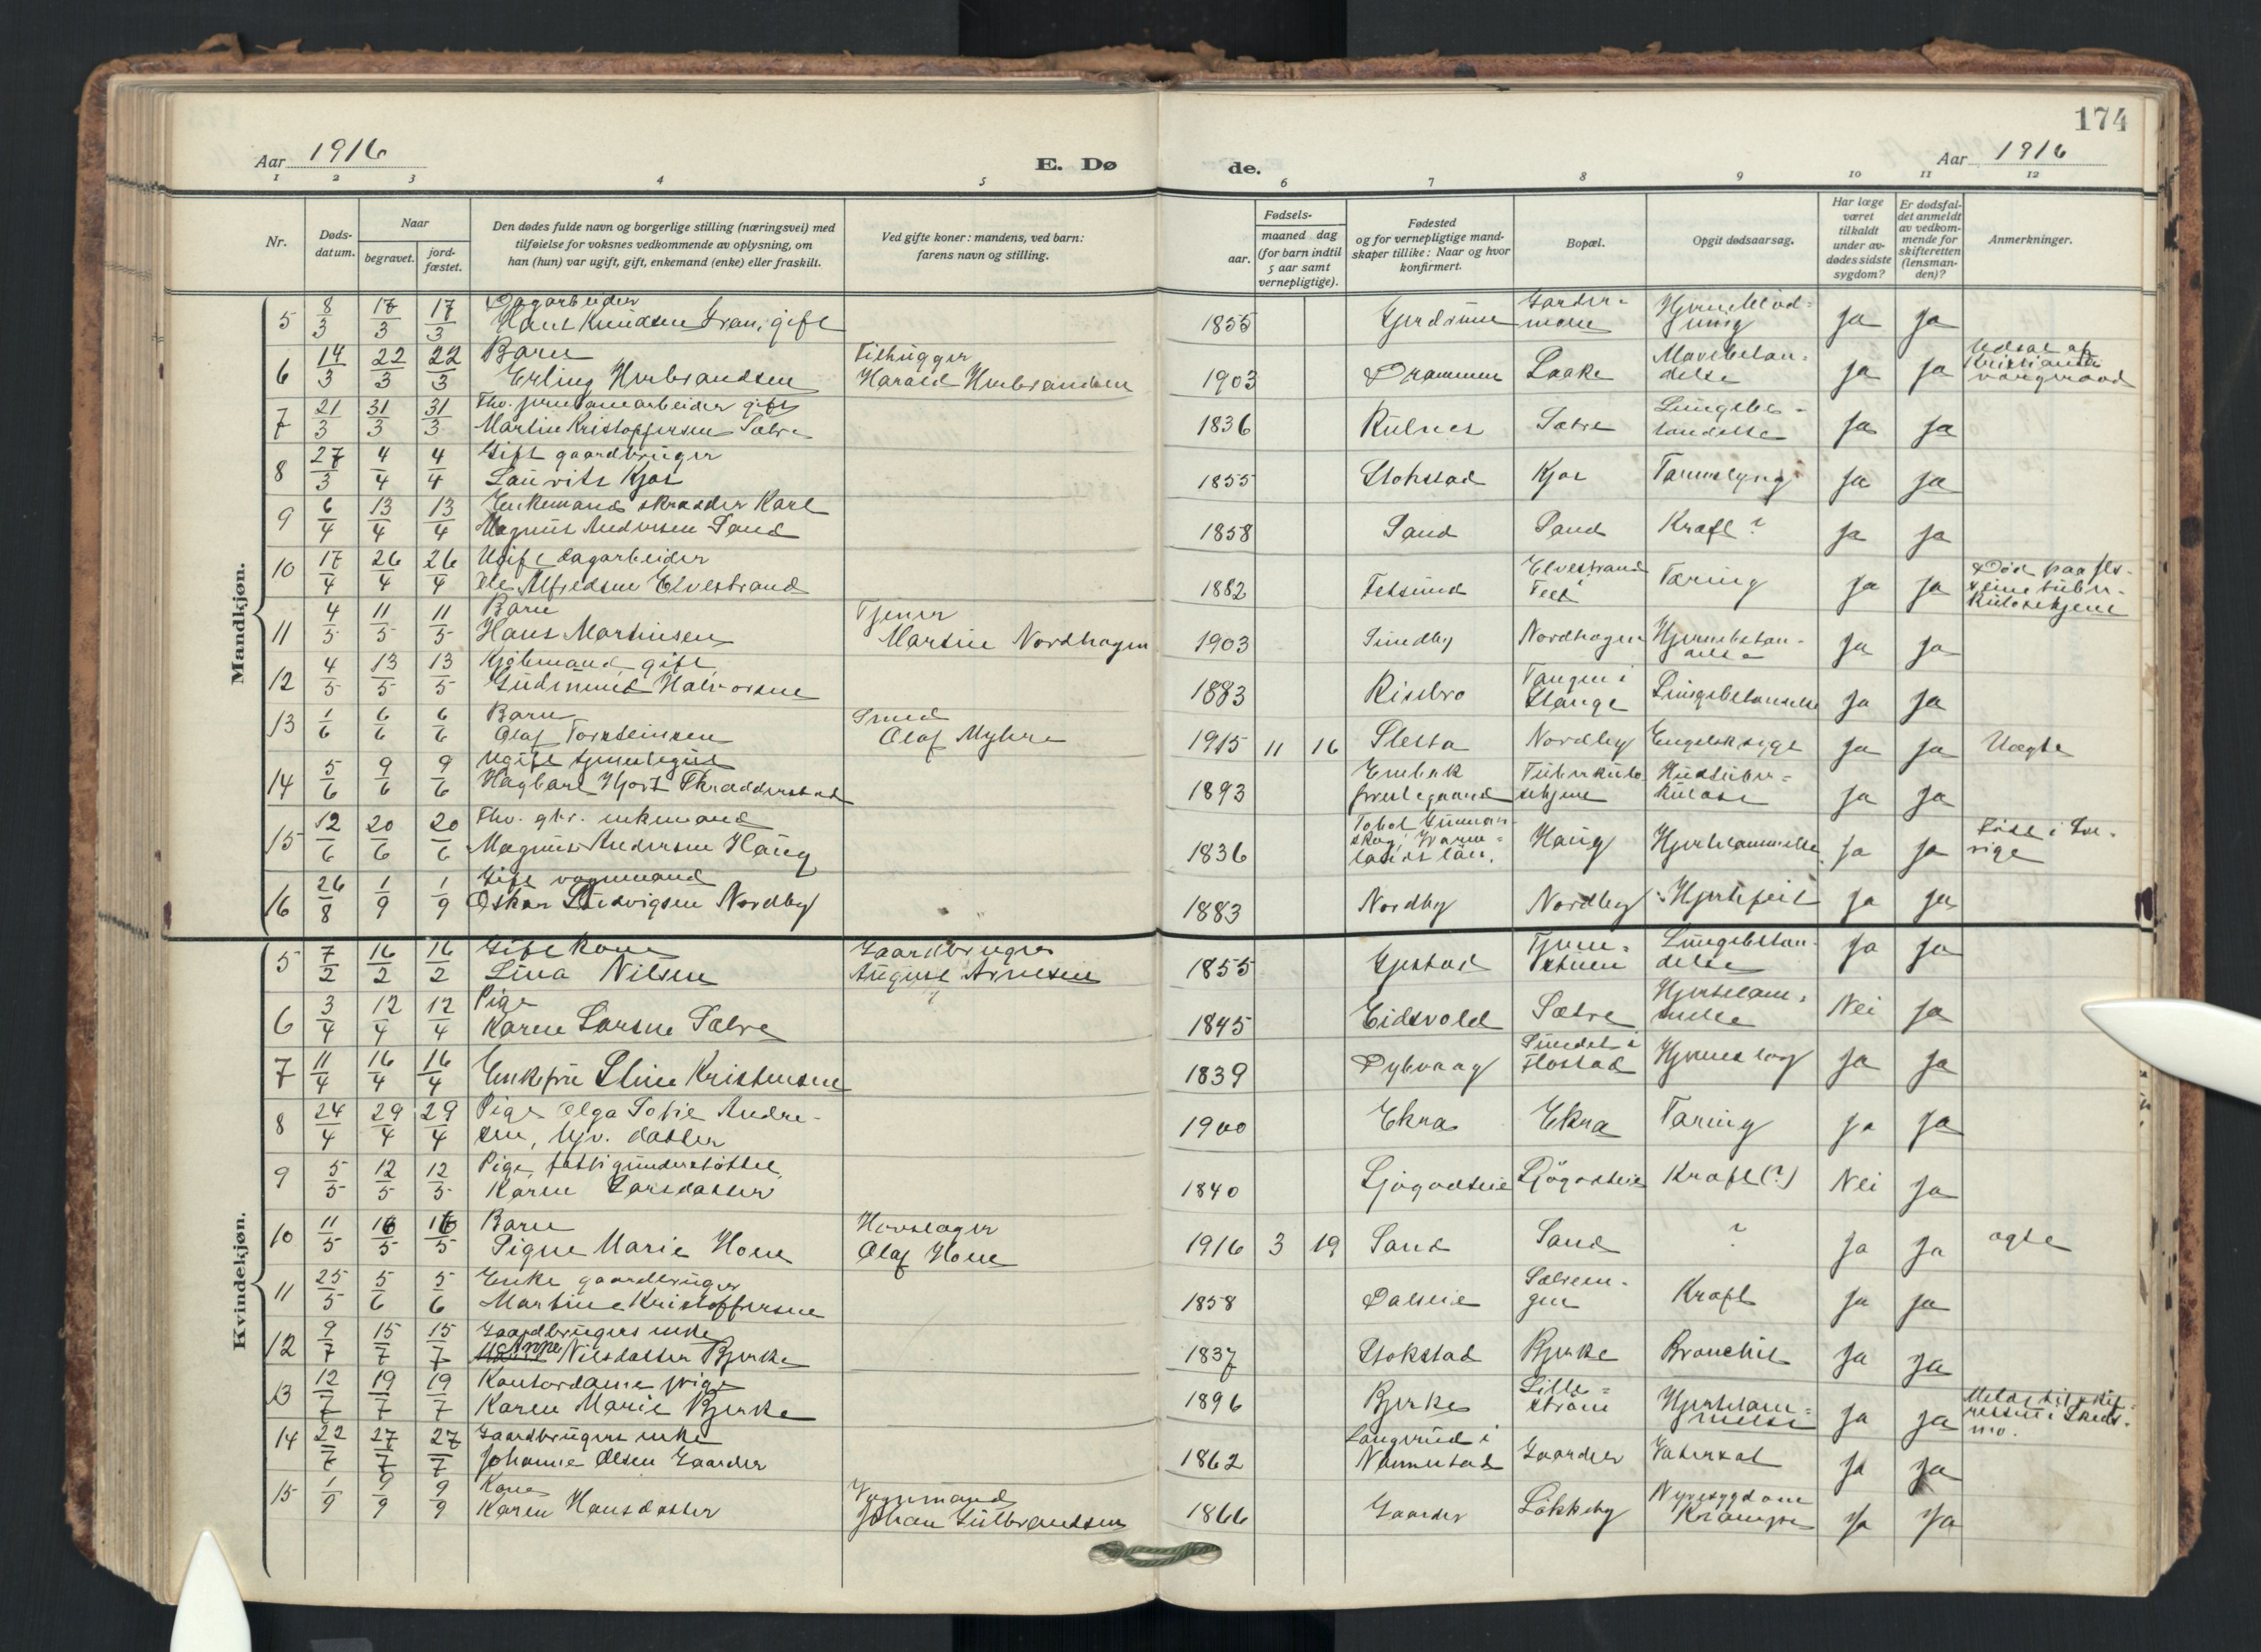 174
Aar 1916
E. Dø
de.
Aar 1916
1 2 3 4 5 6 7 8 9 10 11 12
Nr.
Døds-
datum.
Naar
begravet.
jord-
fæstet.
Den dødes fulde navn og borgerlige stilling (næringsvei) med
tilføielse for voksnes vedkommende av oplysning, om
han (hun) var ugift, gift, enkemand (enke) eller fraskilt.
Ved gifte koner: mandens, ved barn:
farens navn og stilling.
Fødsels-
aar.
maaned dag
(for barn indtil
5 aar samt
vernepligtige).
Fødested
og for vernepligtige mand-
skaper tillike: Naar og hvor
konfirmert.
Bopæl.
Opgit dødsaarsag.
Har læge
været
tilkaldt
under av-
dødes sidste
sygdom?
Er dødsfal-
det anmeldt
av vedkom-
mende for
skifteretten
(lensman-
den)?
Anmerkninger.
Mandkjøn.
5 8/3 17/3 17/3 Dagarbeider
Hans Knudsen Gran, gift
1855 Gjerdrum Garder-
moen Hjerneblød-
ning ja ja
6 14/3 22/3 22/3 Barn
Erling Herbrandsen
Tilhugger
Harald Herbrandsen
1903 Drammen Laake Mavebetæn-
delse ja ja Udsat af
Kristiania
vergeraad
7 21/3 31/3 31/3 Fhv. jernbanearbeider gift
Martin Kristoffersen Sætre
1836 Kulnes Sætre Lungebe-
tændelse ja ja
8 27/3 4/4 4/4 Gift gaardbruger
Lauritz Kjos
1855 Stokstad Kjos Tarmslyng ja ja
9 6/4 13/4 13/4 Enkemand skrædder Karl
Magnus Andersen Sand
1858 Sand Sand Kræft? ja ja
10 17/4 26/4 26/4 Ugift dagarbeider
Ole Alfredsen Elvestrand
1882 Fetsund Elvestrand
i Fet Tæring ja ja Død paa
tuber-
kulosehjem
11 4/5 11/5 11/5 Barn
Hans Martinsen
Tjener
Martin Nordhagen
1903 Sundby Nordhagen Hjernebetæn-
delse ja ja
12 4/5 13/5 13/5 Kjøbmand gift
Gudmund Halvorsen
1883 Risebro Tangen i
Stange Lungebetændelse ja ja
13 1/6 6/6 6/6 Barn
Olaf Torsteinsen
Smed
Olaf Myhre
1915 11 16 Sletta Nordby Engelsk syge ja ja Uægte
14 5/6 9/6 9/6 Ugift
Hagbart Hjort Skradderstad
1893 Enebak
prestegaard Tuberkulo-
sehjem Hudtuber-
kulose ja ja
15 12/6 20/6 20/6 Fhv. gbr. enkemand
Magnus Andersen Haug
1836 Gunnar-
skog, Værm-
lands län. Haug Hjertelammelse ja ja Født i Sve-
rige
16 26/8 1/9 1/9 Gift vognmand
Oskar Ludvigsen Nordby
1883 Nordby Nordby Hjertefeil ja ja
Kvindekjøn.
5 7/2 16/2 16/2 Gift kone
Lina Nilsen
Gaardbruger
August Arnesen
1855 Gjestad Lungebetæn-
delse ja ja
6 3/4 12/4 12/4 Pige
Karen Larsen Sætre
1845 Eidsvold Sætre Hjertelam-
melse Nei ja
7 11/4 16/4 16/4 Enkefru Stine Kristensen
1839 Dybvaag Sundet i
Flostad Hjerneslag ja ja
8 24/4 29/4 29/4 Pige Olga Sofie Andre-
sen, hjv. datter
1900 Ekra Ekra Tæring ja ja
9 5/5 12/5 12/5 Pige, fattigunderstøttet
Karen Larsdatter
1840 Ljøgodteie Ljøgodteie Kræft(?) Nei ja
10 11/5 16/5 16/5 Barn
Signe Marie Hoen
Hovslager
Olaf Hoen
1916 3 19 Sand Sand ? ja ja ægte
11 25/5 5/6 5/6 Enke gaardbruger
Martine Kristoffersen
1858 Dalseie Sætreen-
gen Kræft ja ja
12 9/7 15/7 15/7 Gaardbrugers enke
Anne Nilsdatter Bjerke
1837 Stokstad Bjerke Bronchit ja ja
13 12/7 19/7 19/7 Kontordame pige
Karen Marie Bjerke
1896 Bjerke Lille-
strøm Hjertelam-
melse ja ja Meldt til skif-
retten i Skeds-
mo.
14 22/7 27/7 27/7 Gaardbrugers enke
Johanne Olsen Gaarder
1862 Langerud i
Nannestad Gaarder Vatersot ja ja
15 1/9 9/9 9/9 Kone
Karen Hansdatter
Vognmand
Johan Gulbrandsen
1866 Gaarder Løkkeby Nyresygdom
Krampe ja ja